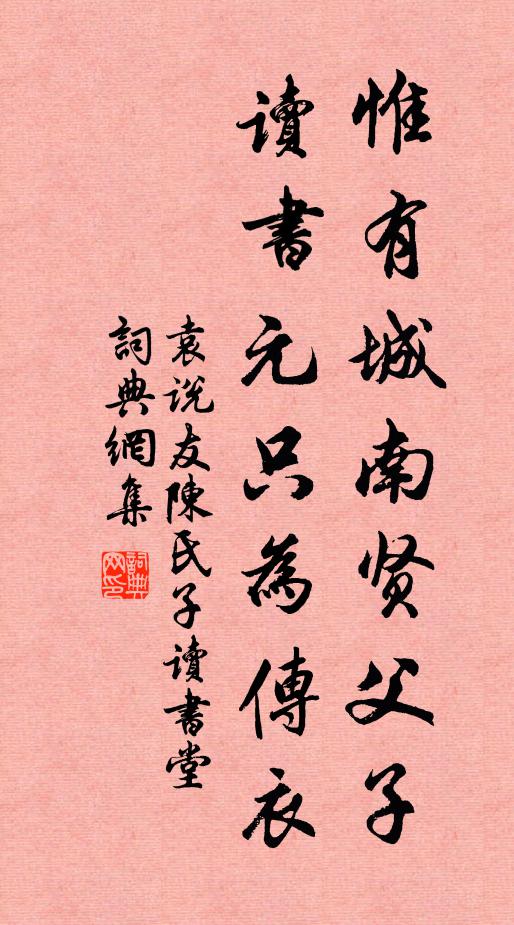 惟有城南贤父子
讀書元只為傳衣
袁説友陳氏子讀書堂
詞典網集
詞典网印